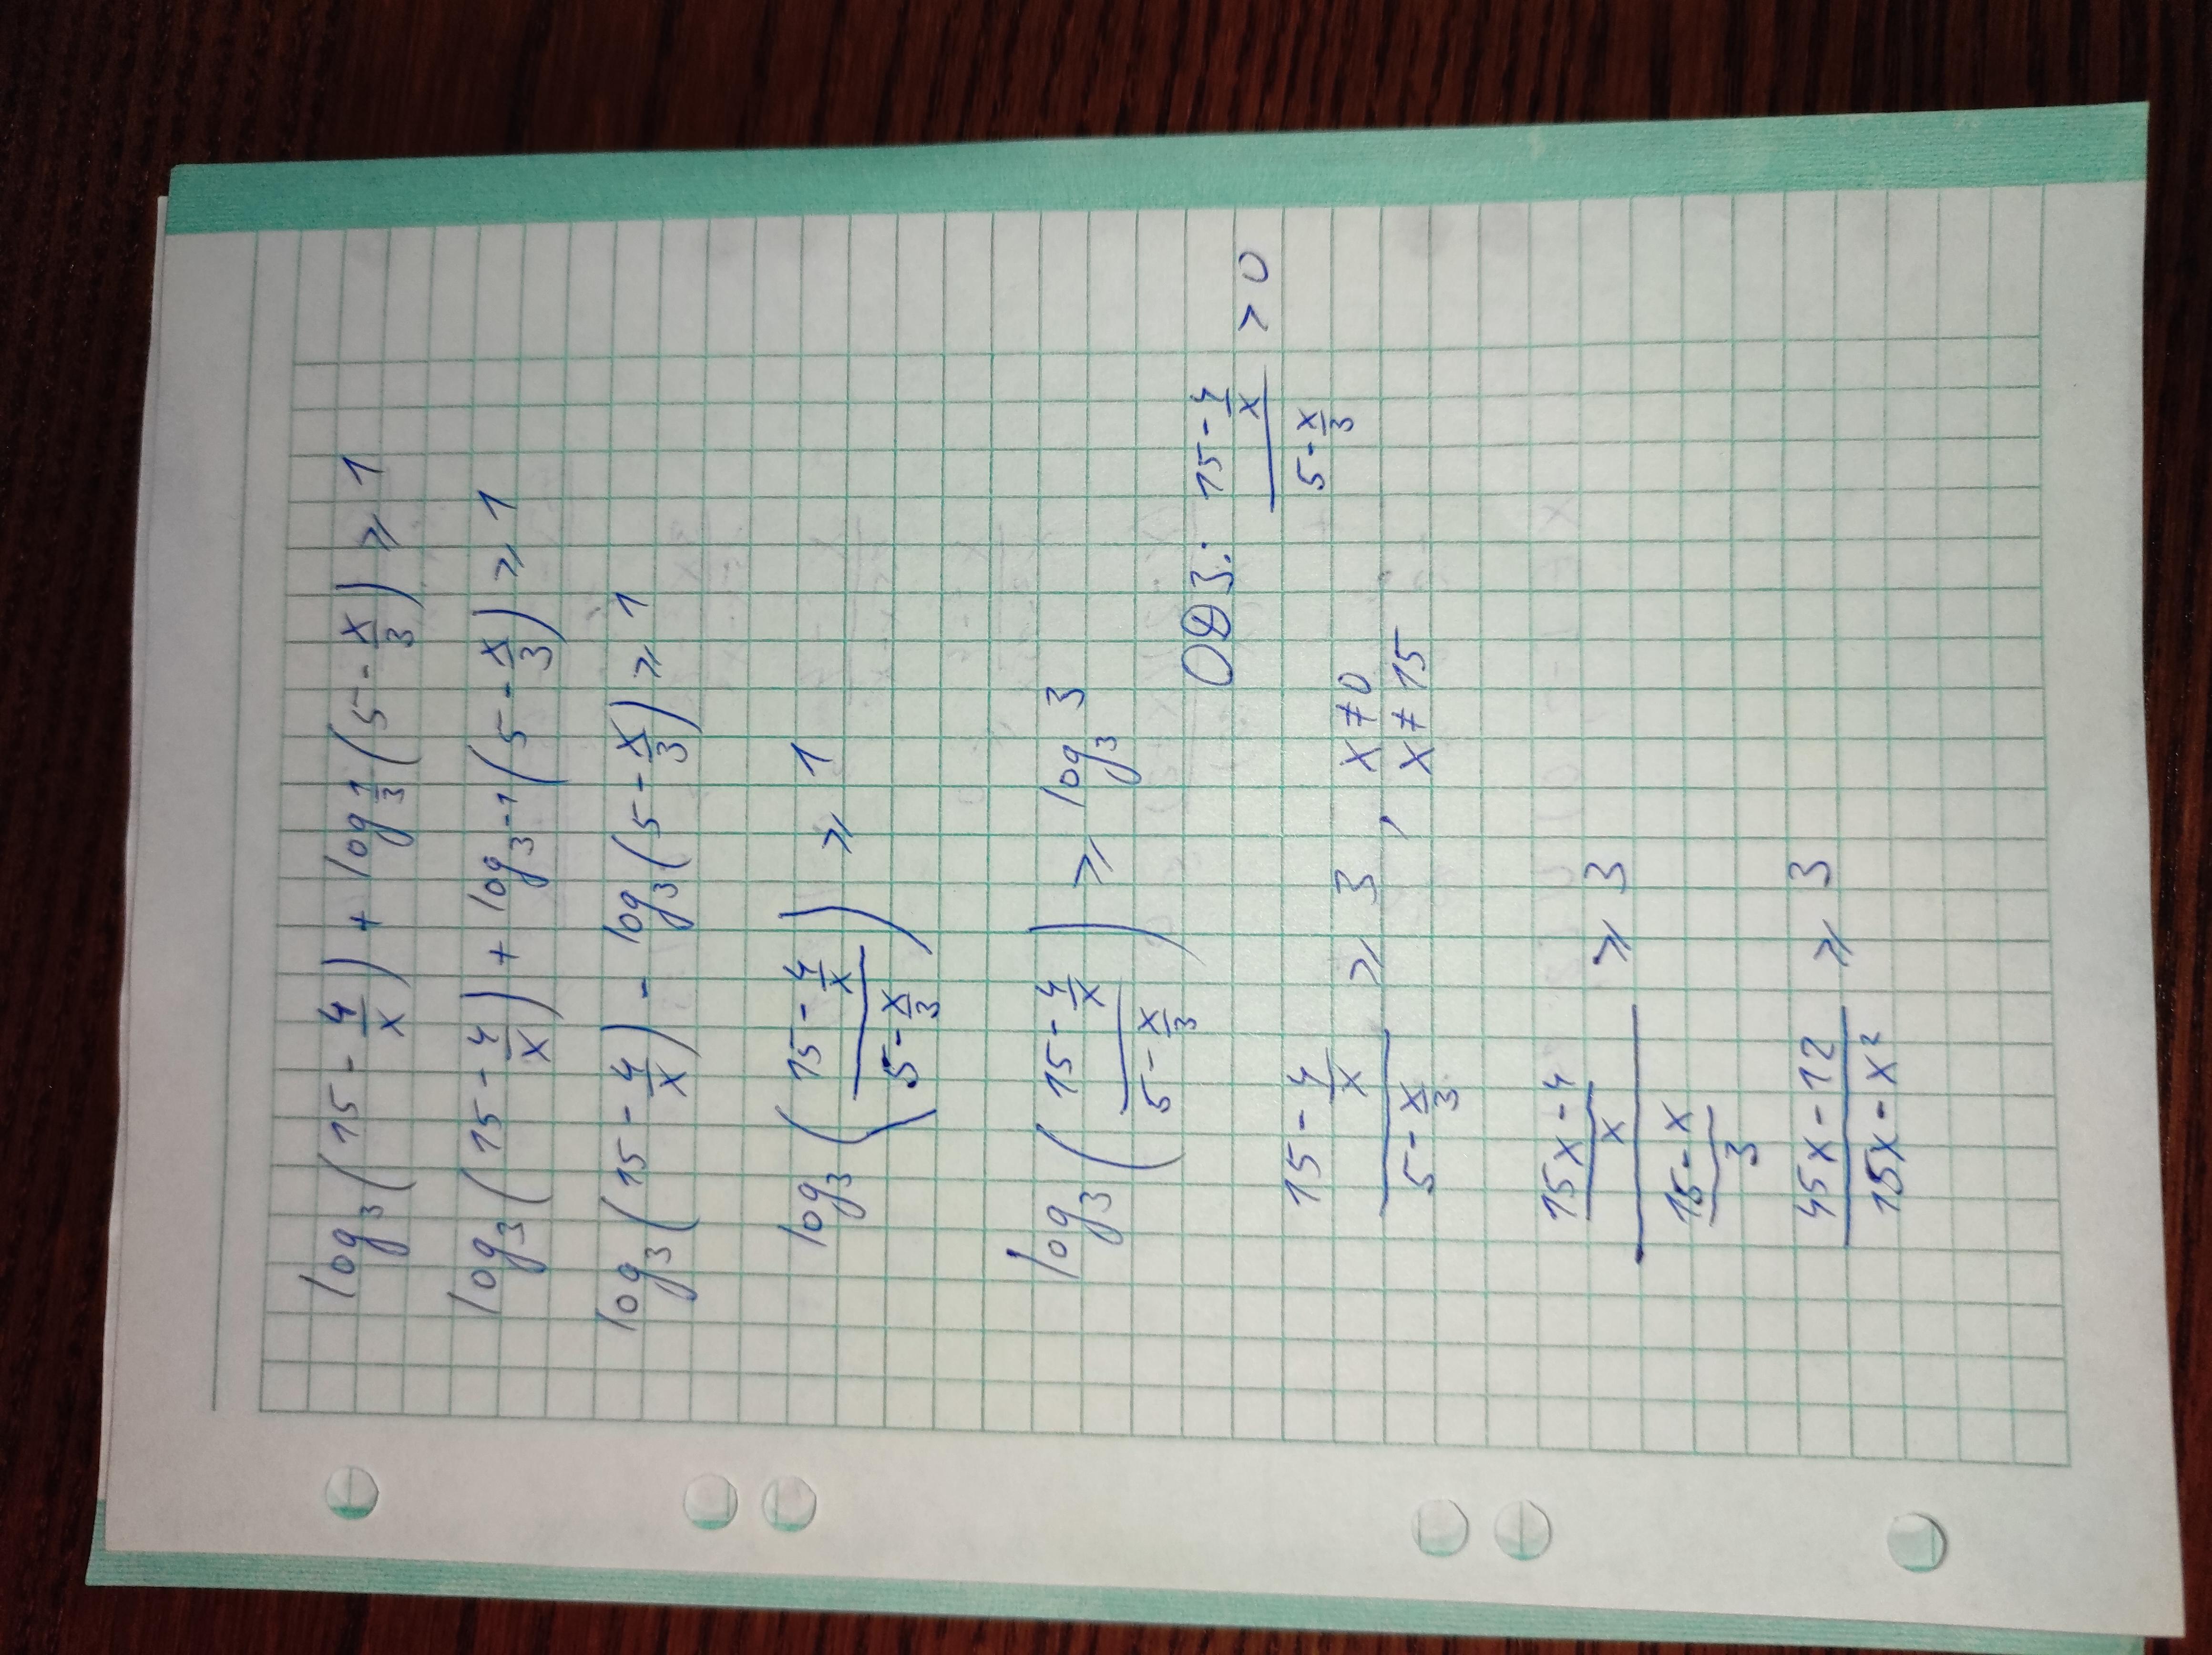 log₃(15 - 4/x) + log_{1/3}(5 - x/3) ⩾ 1
log₃(15 - 4/x) + log_{3⁻¹}(5 - x/3) ⩾ 1
log₃(15 - 4/x) - log₃(5 - x/3) ⩾ 1
log₃((15 - 4/x)/(5 - x/3)) ⩾ 1
log₃((15 - 4/x)/(5 - x/3)) ⩾ log₃ 3
ОДЗ: (15 - 4/x)/(5 - x/3) > 0
(15 - 4/x)/(5 - x/3) ⩾ 3, x ≠ 0
x ≠ 15
((15x - 4)/x)/((15 - x)/3) ⩾ 3
(45x - 12)/(15x - x²) ⩾ 3